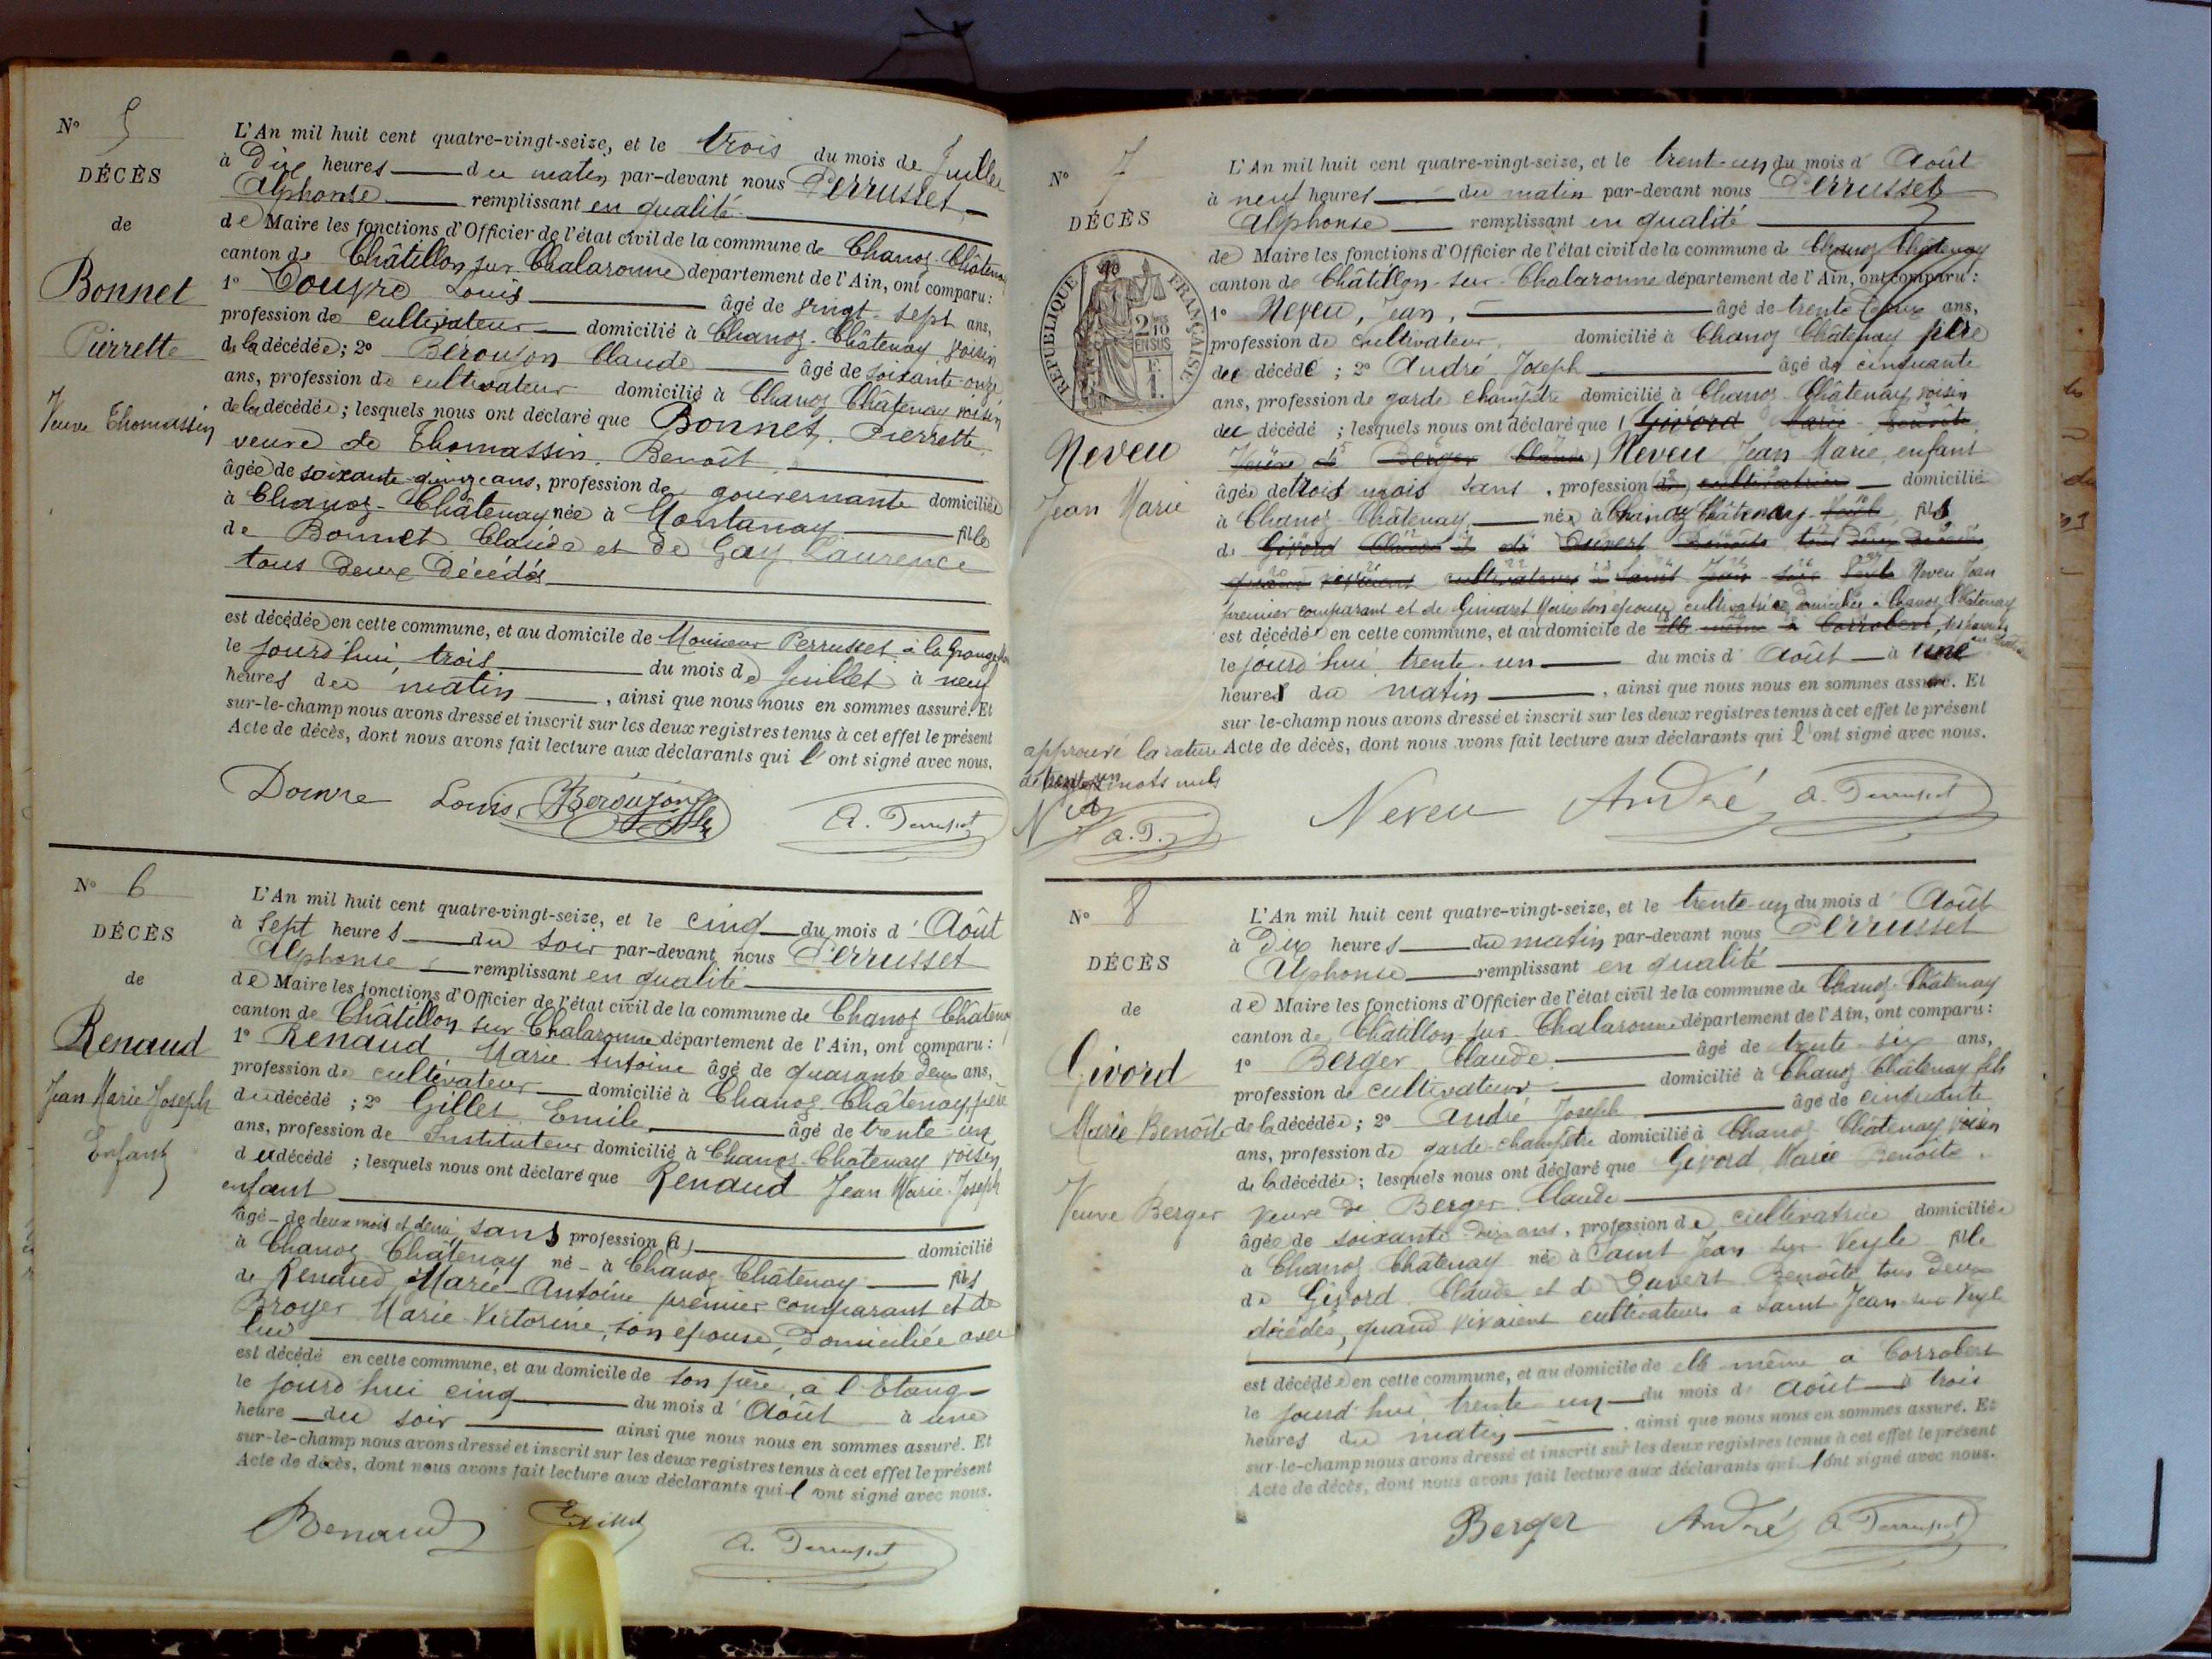 N° 5
DÉCÈS
de
Bonnet
Pierrette
Veuve Thomassin
L'An mil huit cent quatre-vingt-seize, et le trois du mois de Juillet
à Dix heures du matin par-devant nous Perrusset
Alphonse remplissant en qualité
de Maire les fonctions d'Officier de l'état civil de la commune de Chanoz Châtenay
canton de Châtillon sur Chalaronne département de l'Ain, ont comparu :
1° Louis âgé de vingt-sept ans,
profession de cultivateur domicilié à Chanoz-Châtenay voisin
de la décédée ; 2° Béroujon Claude âgé de soixante-onze
ans, profession de cultivateur domicilié à Chanoz Châtenay voisin
de la décédée ; lesquels nous ont déclaré que Bonnet, Pierrette
veuve de Thomassin, Benoît
âgée de soixante-quinze ans, profession de gouvernante domiciliée
à Chanoz-Châtenay née à Montanay fille
de Bonnet Claude et de Gay Laurence
tous deux décédés
est décédée en cette commune, et au domicile de Monsieur Perrusset à la
le jourd'hui, trois du mois de Juillet à neuf
heures du matin, ainsi que nous nous en sommes assuré. Et
sur-le-champ nous avons dressé et inscrit sur les deux registres tenus à cet effet le présent
Acte de décès, dont nous avons fait lecture aux déclarants qui l'ont signé avec nous.
Louis Béroujon A. Perrusset
N° 6
DÉCÈS
de
Renaud
Jean Marie Joseph
Enfant
L'An mil huit cent quatre-vingt-seize, et le cinq du mois d'Août
à Sept heures du soir par-devant nous Perrusset
Alphonse remplissant en qualité
de Maire les fonctions d'Officier de l'état civil de la commune de Chanoz Châtenay
canton de Châtillon sur Chalaronne département de l'Ain, ont comparu :
1° Renaud, Marie Antoine âgé de quarante deux ans,
profession de cultivateur domicilié à Chanoz-Châtenay, père
du décédé ; 2° Gillet, Emile âgé de trente-un
ans, profession de Instituteur domicilié à Chanoz-Châtenay voisin
du décédé ; lesquels nous ont déclaré que Renaud Jean Marie Joseph
enfant
âgé de deux mois et demi, sans profession (d
domicilié
à Chanoz Châtenay né à Chanoz-Châtenay fils
de Renaud Marie-Antoine premier comparant et de
Broyer Marie Victorine, son épouse, domiciliée avec
lui
est décédé en cette commune, et au domicile de son père, à l'Etang
le jourd'hui cinq du mois d'Août à une
heure du soir ainsi que nous nous en sommes assuré. Et
sur-le-champ nous avons dressé et inscrit sur les deux registres tenus à cet effet le présent
Acte de décès, dont nous avons fait lecture aux déclarants qui l'ont signé avec nous.
Renaud E Gillet A. Perrusset
N° 7
DÉCÈS
REPUBLIQUE FRANÇAISE
2/10 EN SUS
Neveu
Jean Marie
L'An mil huit cent quatre-vingt-seize, et le trente-un du mois d'Août
à neuf heures du matin par-devant nous Perrusset
Alphonse remplissant en qualité
de Maire les fonctions d'Officier de l'état civil de la commune de Chanoz Châtenay
canton de Châtillon-sur-Chalaronne département de l'Ain, ont comparu :
1° Neveu, Jean, âgé de trente deux ans,
profession de cultivateur domicilié à Chanoz Châtenay père
du décédé ; 2° André Joseph âgé de cinquante
ans, profession de garde champêtre domicilié à Chanoz-Châtenay, voisin
du décédé ; lesquels nous ont déclaré que (Givord Marie-Benoîte
Veuve de Berger Claude) Neveu Jean Marie, enfant
âgé de trois mois sans profession (de) cultivatrice domicilié
à Chanoz-Châtenay né à Chanoz Châtenay Veyle fils
de Givord Claude et de Duvert Benoîte tous deux décédés
quand vivaient cultivateurs à Saint Jean sur Veyle Neveu Jean
premier comparant et de Marie son épouse, cultivatrice domiciliée à Chanoz Châtenay
est décédé en cette commune, et au domicile de elle même à Corrobert, ses parents
le jourd'hui trente-un du mois d'Août à une
heures du matin, ainsi que nous nous en sommes assuré. Et
sur-le-champ nous avons dressé et inscrit sur les deux registres tenus à cet effet le présent
Acte de décès, dont nous avons fait lecture aux déclarants qui l'ont signé avec nous.
approuvé la rature
de trente-un mots nuls
A.P.
Neveu André A. Perrusset
N° 8
DÉCÈS
de
Givord
Marie Benoîte
Veuve Berger
L'An mil huit cent quatre-vingt-seize, et le trente-un du mois d'Août
à Dix heures du matin par-devant nous Perrusset
Alphonse remplissant en qualité
de Maire les fonctions d'Officier de l'état civil de la commune de Chanoz-Châtenay
canton de Châtillon-sur-Chalaronne département de l'Ain, ont comparu :
1° Berger Claude âgé de trente-six ans,
profession de cultivateur domicilié à Chanoz-Châtenay fils
de la décédée ; 2° André Joseph âgé de cinquante
ans, profession de garde-champêtre domicilié à Chanoz-Châtenay voisin
de la décédée ; lesquels nous ont déclaré que Givord, Marie Benoîte
veuve de Berger Claude
âgée de soixante-dix ans, profession de cultivatrice domiciliée
à Chanoz Châtenay née à Saint Jean sur Veyle fille
de Givord Claude et de Duvert Benoîte tous deux
décédés, quand vivaient cultivateurs à Saint Jean sur Veyle
est décédée en cette commune, et au domicile de elle même à Corrobert
le jourd'hui trente un du mois d'Août à trois
heures du matin, ainsi que nous nous en sommes assuré. Et
sur-le-champ nous avons dressé et inscrit sur les deux registres tenus à cet effet le présent
Acte de décès, dont nous avons fait lecture aux déclarants qui l'ont signé avec nous.
Berger André A. Perrusset